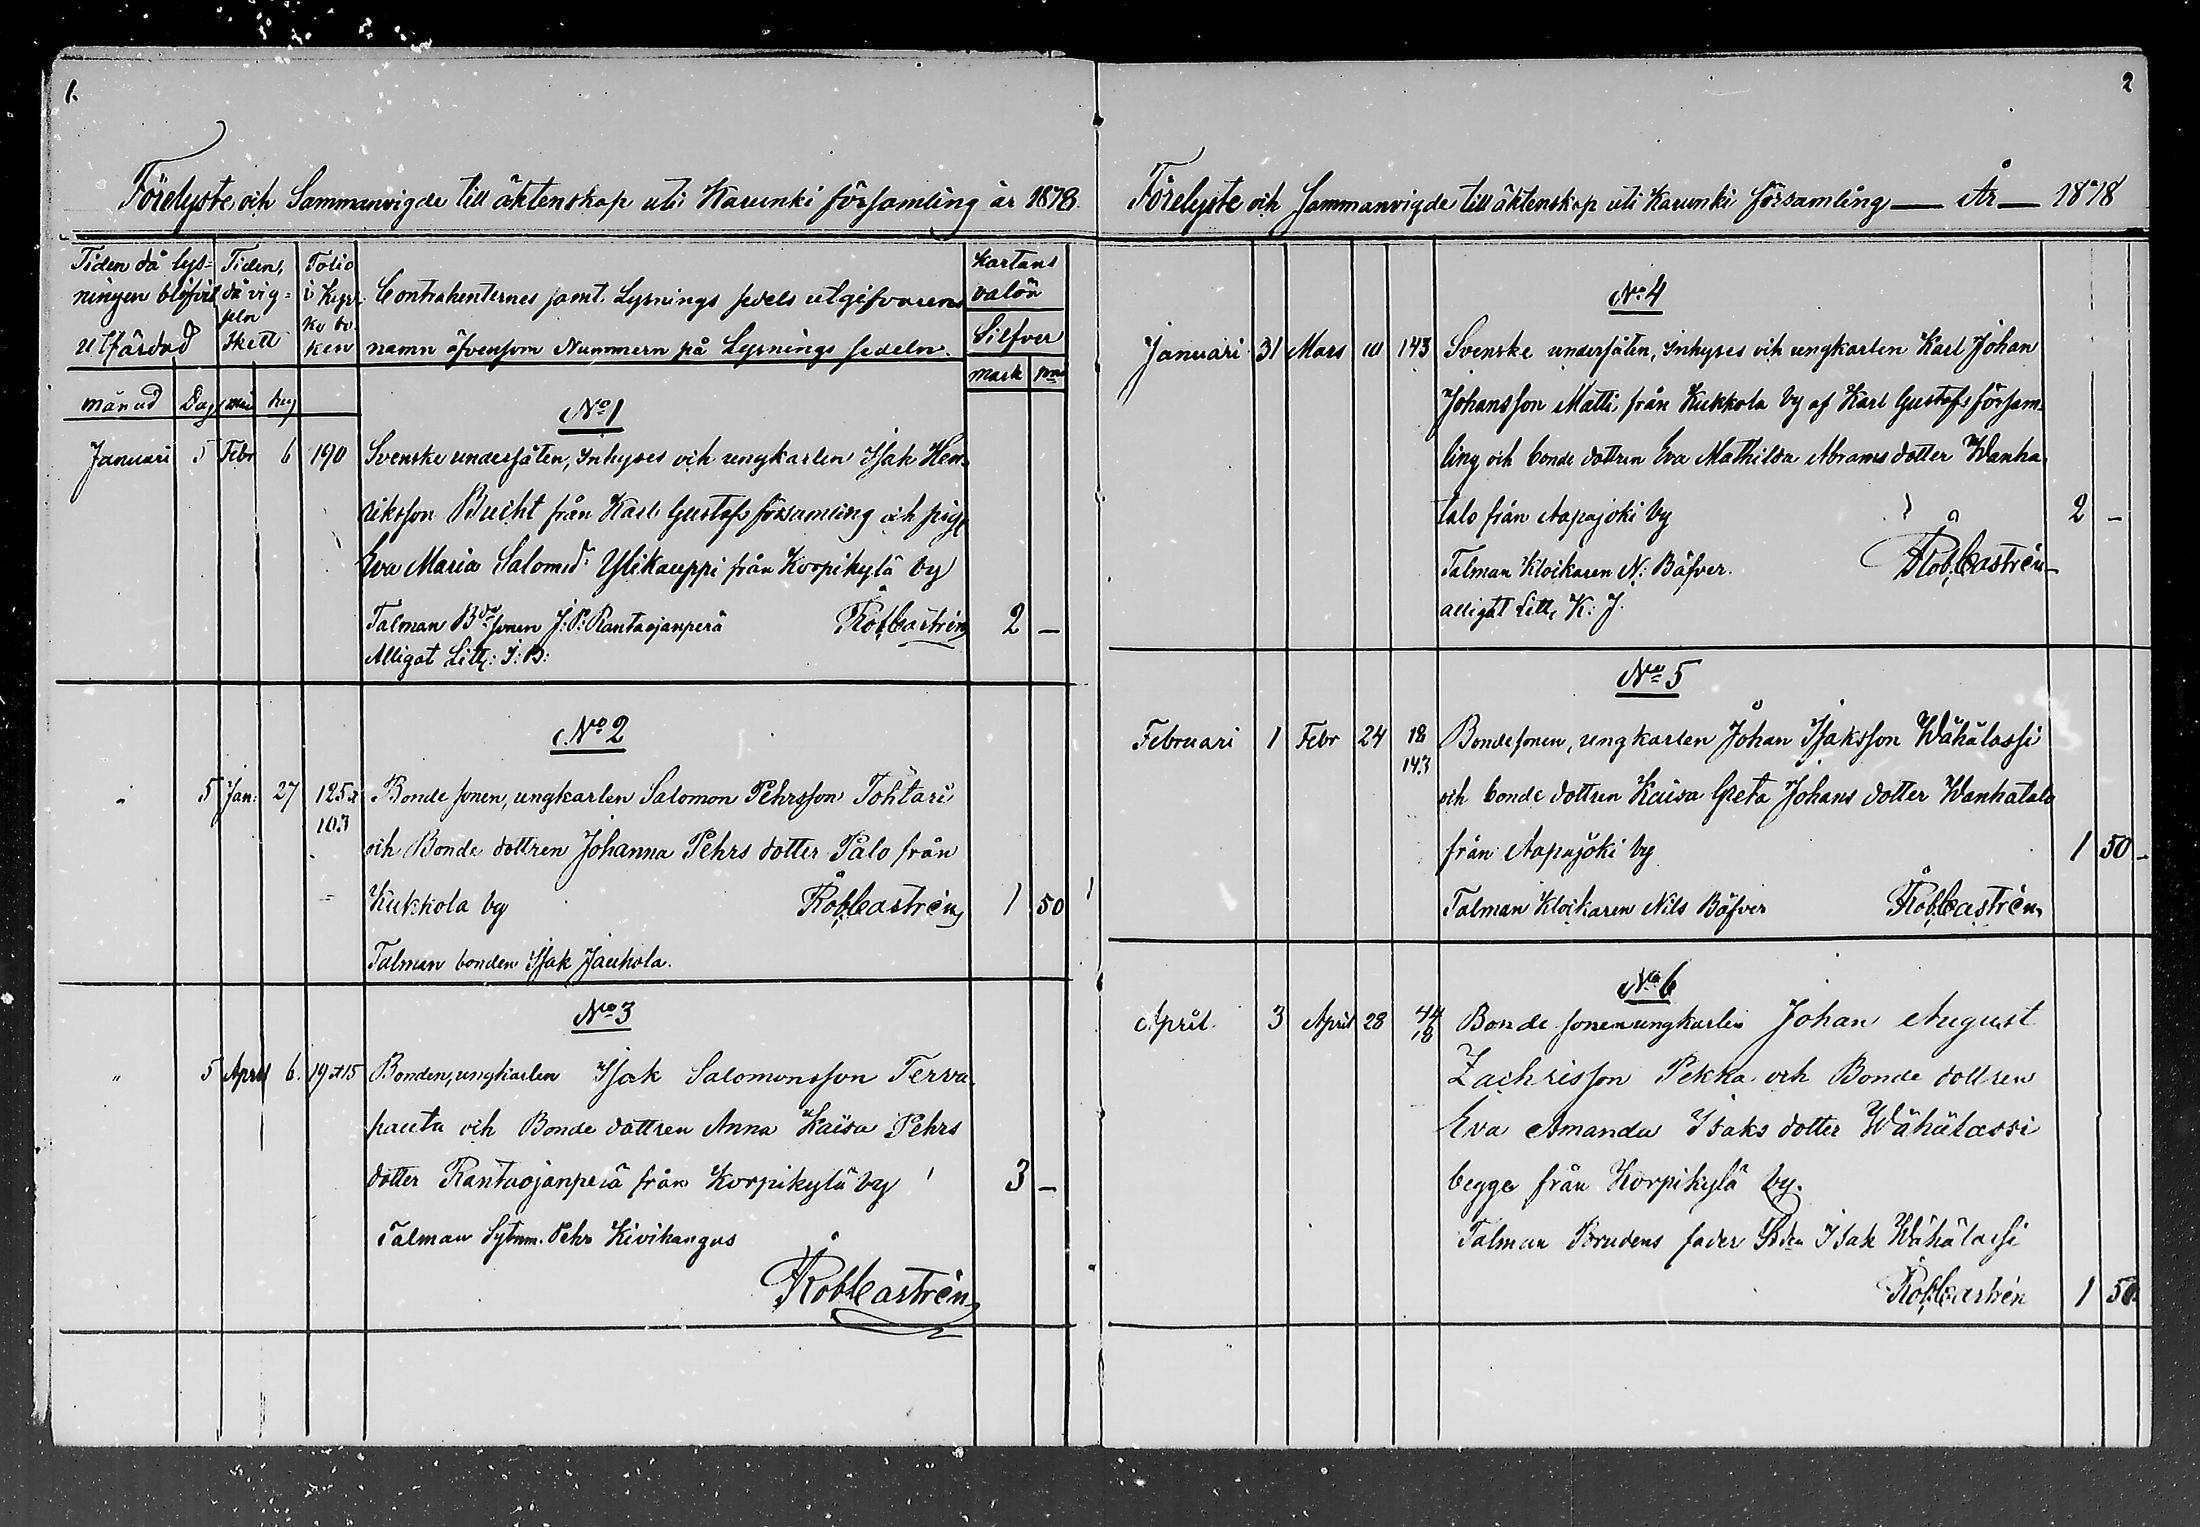 1.
Förelyste och Sammanvigde till äktenskap uti Karunki församling år 1878.
Tiden då lys-
ningen blifvit
utfärdad
Tiden,
då vig-
seln
skett
Folio
i Kyr-
ko bo-
ken
Contrahenternes samt Lysnings sedels utgifvarens
namn äfvensom Nummern på Lysnings sedeln.
Kartans
valör
Silfver
mark
månad Dag
No 1
Januari 5 Febr 6 190 Svenske undersåten, Inhyses och ungkarlen Isak Hen-
riksson Bucht från Karl Gustafs församling och piga
Eva Maria Salomd: Ylikauppi från Korpikylä by
Talman Bdesonen J: P: Rantaojanperä Rob Castrén 2 —
Alligat Litt: I: B:
No 2
" 5 Jan: 27 125 Bonde sonen, ungkarlen Salomon Pehrsson Tohtari
103
och Bonde dottren Johanna Pehrs dotter Palo från
Kukkola by Rob Castrén 1 50
Talman bonden Isak Jauhola.
No 3
" 5 April 6. 19 15 Bonden, ungkarlen Isak Salomonsson Terva-
pauta och Bonde dottren Anna Kaisa Pehrs
dotter Rantaojanperä från Korpikylä by 3 —
Talman Sytnm. Pehr Kivikangus
Rob Castrén
2
Förelyste och Sammanvigde till äktenskap uti Karunki församling — År — 1878
No 4
Januari 31 Mars 10 143 Svenske undersåten, Inhyses och ungkarlen Karl Johan
Johansson Matti från Kukkola by af Karl Gustafs försam-
ling och bonde dottren Eva Mathilda Abrams dotter Wanha
talo från Aapajoki by 2 —
Talman Klockaren N: Bäfver. Rob Castrén
alligat Litt, K: J.
No 5
Februari 1 Febr 24 18 Bondesonen, ungkarlen Johan Isaksson Wähälassi
143
och bonde dottren Kaisa Greta Johans dotter Wanhatalo
från Aapajoki by 1 50 —
Talman Klockaren Nils Bäfver Rob Castrén
No 6
April 3 April 28 44 Bonde sonen ungkarlen Johan August
18
Zachrisson Pekka och Bonde dottren
Eva Amanda Isaks dotter Wähälassi
begge från Korpikylä by.
Talman Brudens fader Bden Isak Wähälassi
Rob Castrén 1 50